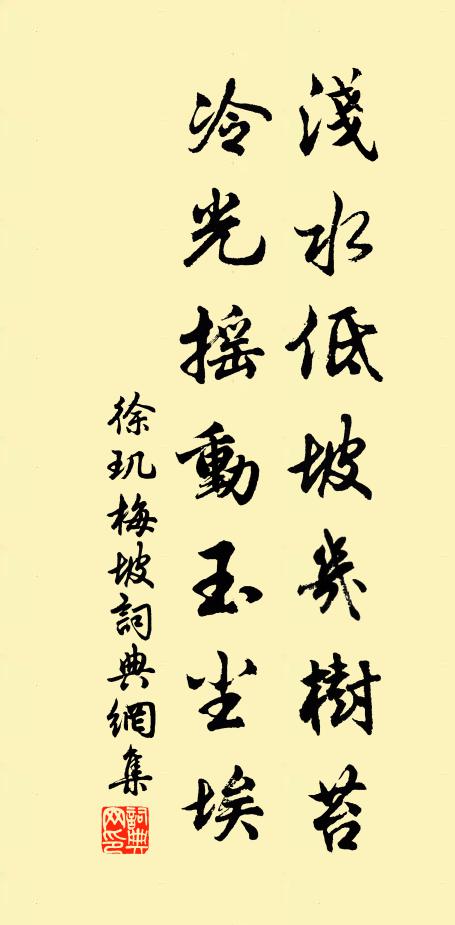 淺水低坡幾樹苔
冷光搖動玉尘埃
徐玑梅坡詞典網集
詞典网印